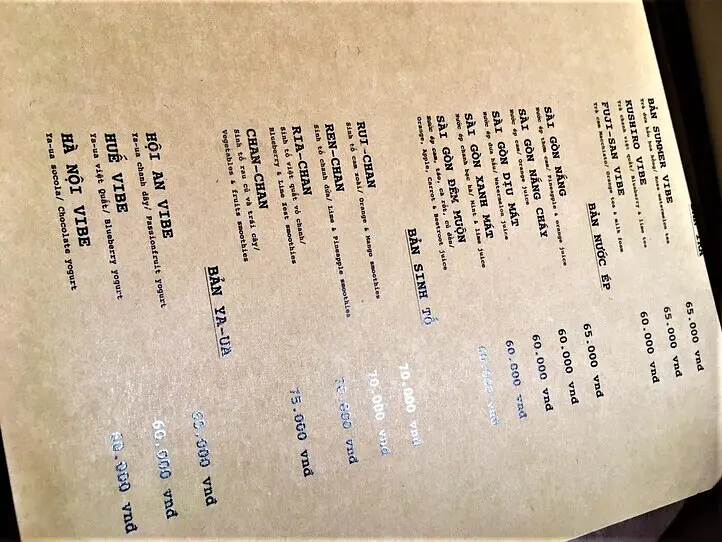 BẢN SUMMER VIBE 65.000 vnđ
Trà đào hoa hồng/ Rose watermelon tea
KUSHIRO VIBE 65.000 vnđ
Trà chanh việt quất/ Blueberry & lime tea
FUJI-SAN VIBE 60.000 vnđ
Trà cam macchiato/ Orange tea & milk foam
BẢN NƯỚC ÉP
SÀI GÒN NẮNG 65.000 vnđ
Nước ép thơm cam/ Pineapple & orange juice
SÀI GÒN NẮNG CHÁY 60.000 vnđ
Nước ép cam/ Orange juice
SÀI GÒN DỊU MÁT 60.000 vnđ
Nước ép dưa hấu/ Watermelon juice
SÀI GÒN XANH MÁT 60.000 vnđ
Nước ép chanh bạc hà/ Mint & lime juice
SÀI GÒN ĐÊM MUỘN 60.000 vnđ
Nước ép cam, táo, cà rốt, củ dền/
Orange, Apple, Carrot & Beetroot juice
BẢN SINH TỐ
RUI-CHAN 70.000 vnđ
Sinh tố cam xoài/ Orange & Mango smoothies
REN-CHAN 70.000 vnđ
Sinh tố chanh dứa/ Lime & Pineapple smoothies
RIA-CHAN 70.000 vnđ
Sinh tố việt quất vỏ chanh/
Blueberry & Lime Zest smoothies
CHAN-CHAN 75.000 vnđ
Sinh tố rau củ và trái cây/
Vegetables & fruits smoothies
BẢN YA-UA
HỘI AN VIBE 60.000 vnđ
Ya-ua chanh dây/ Passionfruit yogurt
HUẾ VIBE 60.000 vnđ
Ya-ua Việt Quất/ Blueberry yogurt
HÀ NỘI VIBE 60.000 vnđ
Ya-ua Socola/ Chocolate yogurt